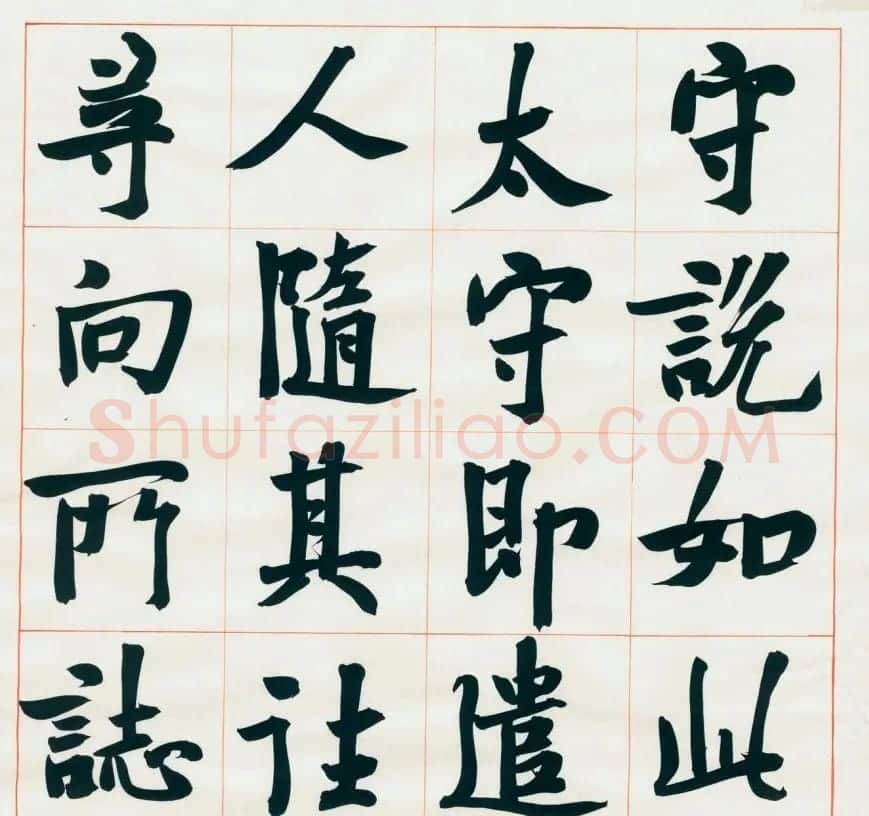 守說如此
太守即遣
人隨其往
尋向所誌
Shufaziliao.COM